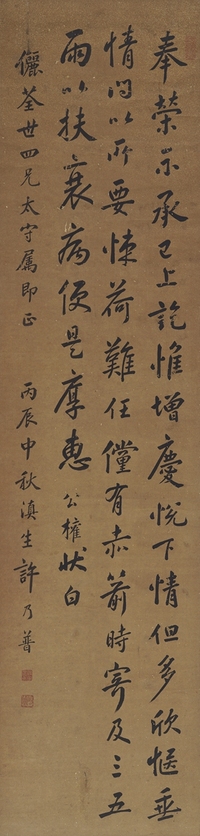 奉榮示承已上訖惟增慶悅下情但多欣惬垂
情問以所要悚荷難任儻有赤箭時寄及三五
兩以扶衰病便是厚惠公權狀白
儷荃世四兄太守屬即正 丙辰中秋滇生許乃普